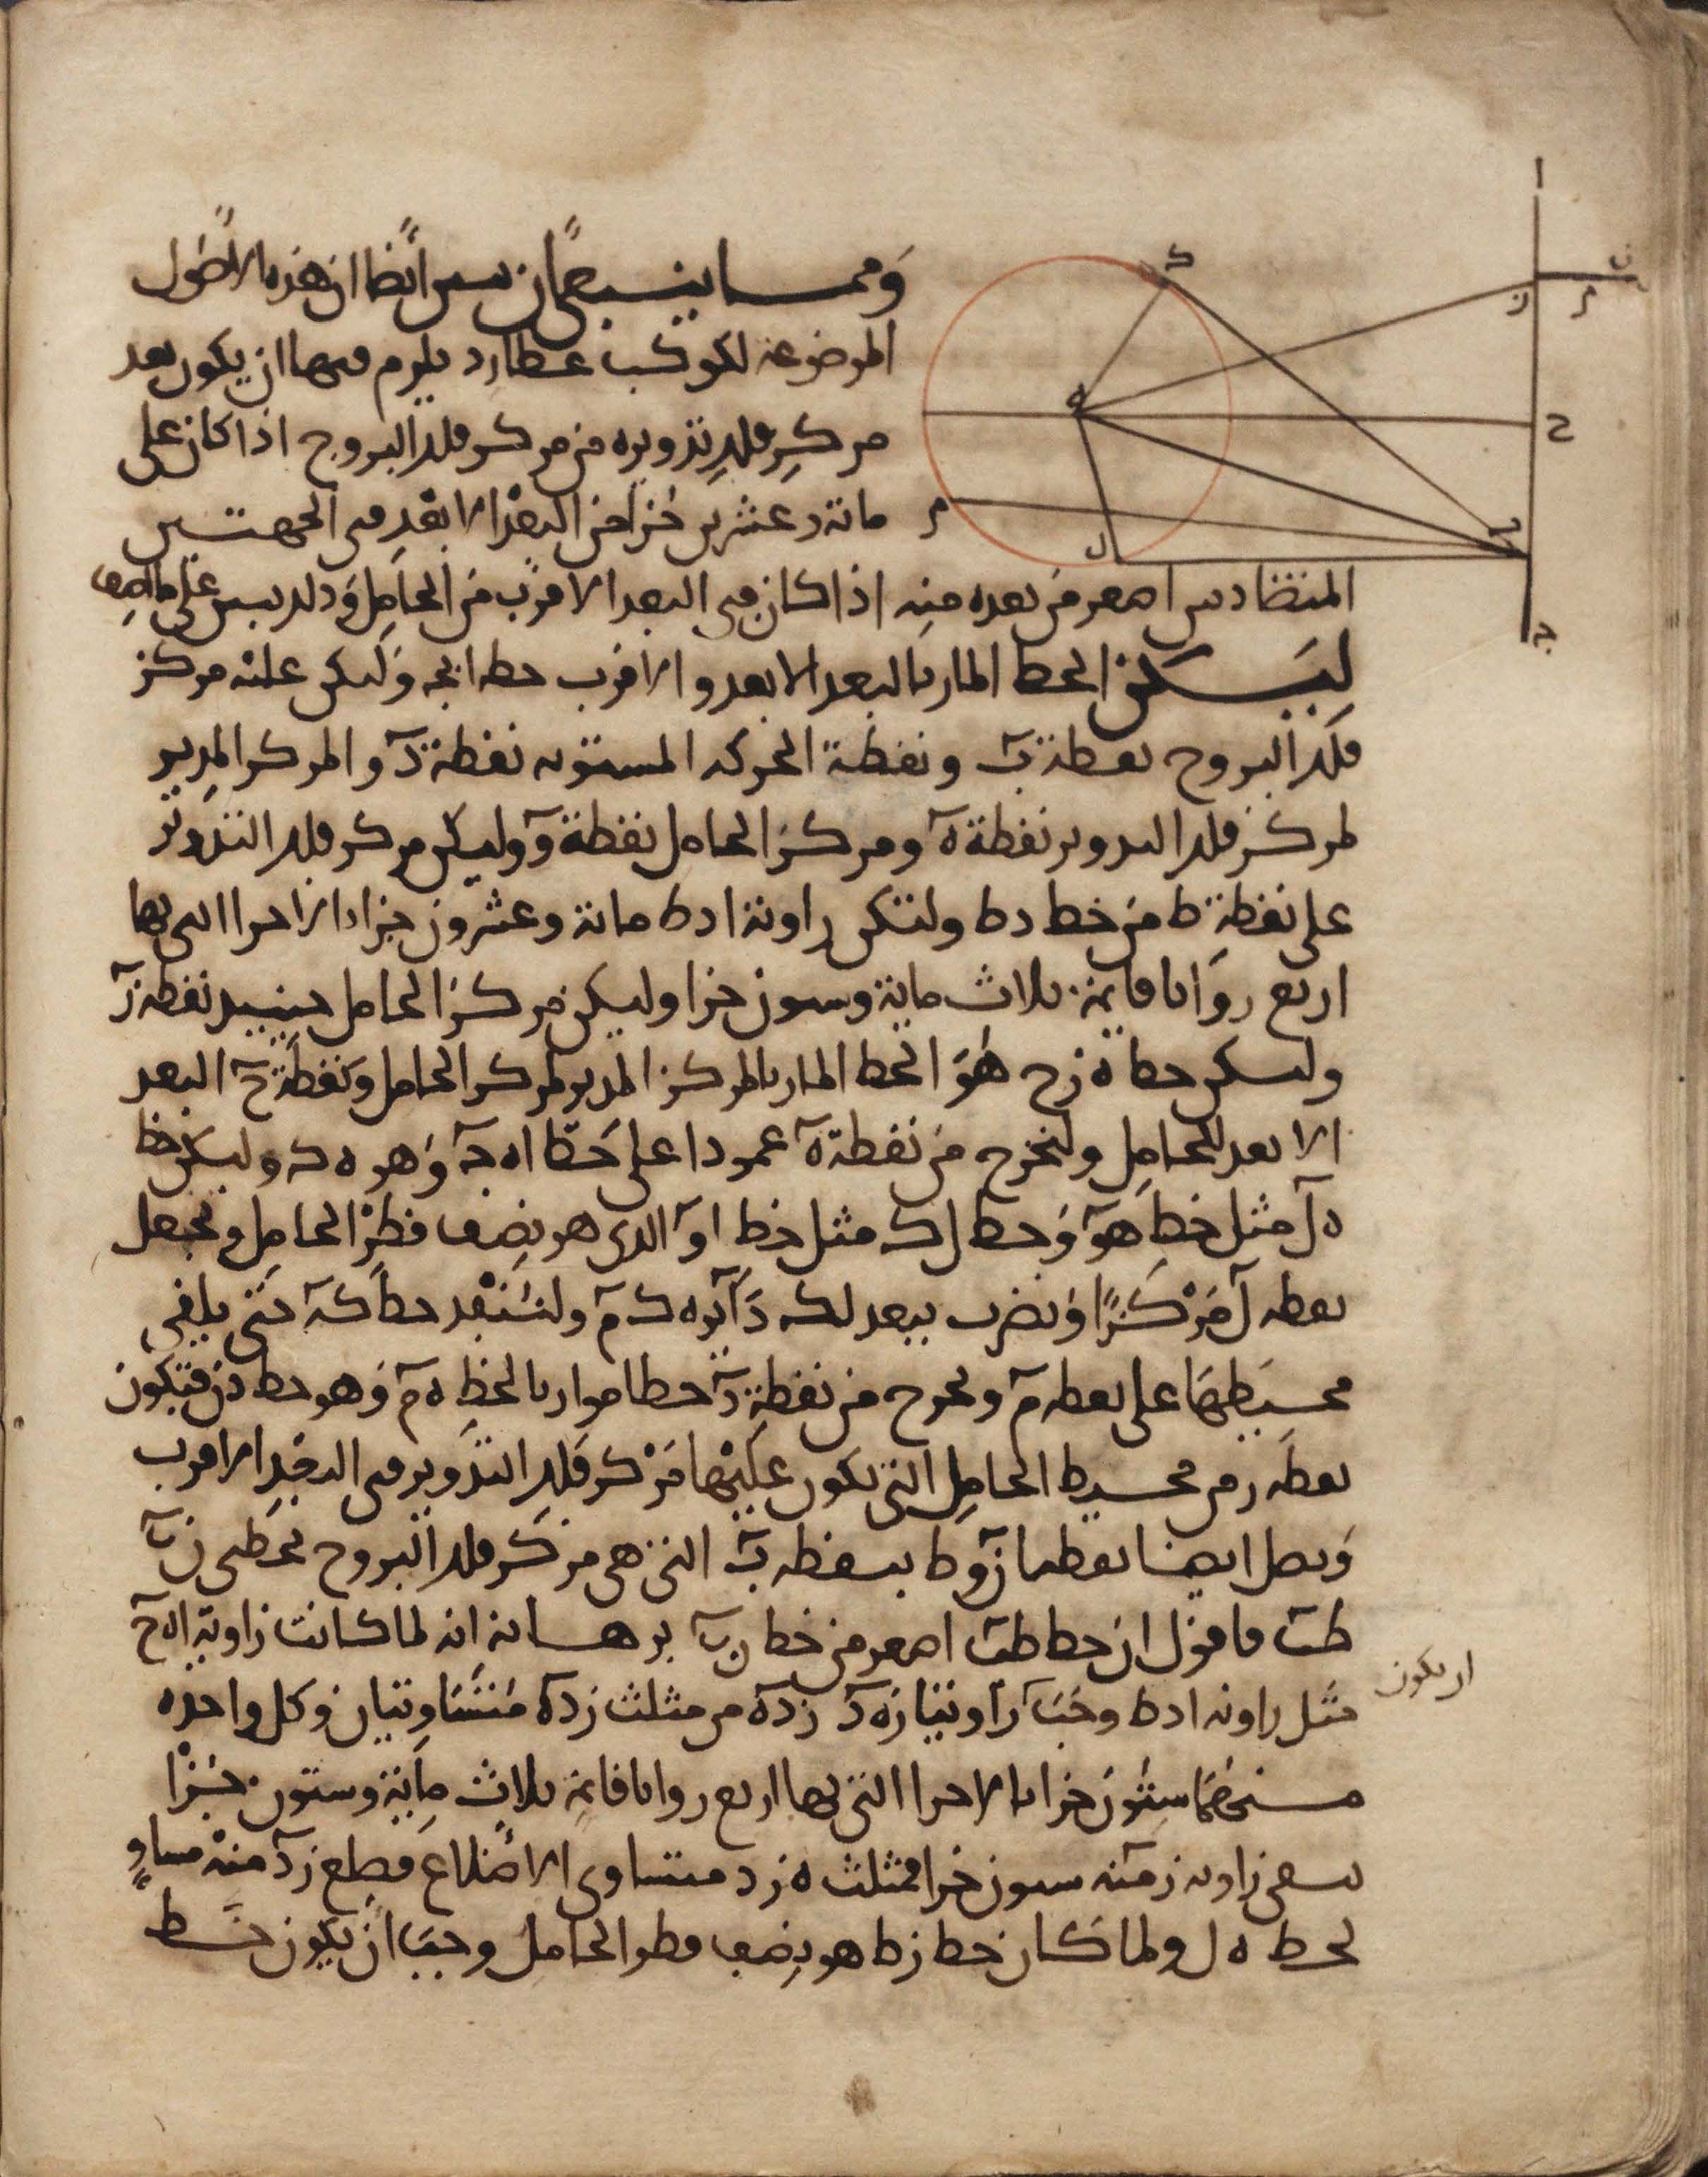 ومما ينبغي ان نبين ايضا ان هذه الاصول
الموضوعة لكوكب عطارد يلزم فيها ان يكون بعد
مركز فلك تدويره من مركز فلك البروج اذا كان على
مائة وعشرين جزا من البعد الابعد في الجهتين
المتضادتين اصغر من بعده منه اذا كان في البعد الاقرب من الحامل وذلك يبين على ما اصف
ليكن الخط المار بالبعد الابعد والاقرب خط ابج وليكن عليه مركز
فلك البروج نقطة ب ونقطة الحركة المستوية نقطة د والمركز المدير
لمركز فلك التدوير نقطة ه ومركز الحامل نقطة و وليكن مركز فلك التدوير
على نقطة ط من خط دط ولتكن زاوية ادط مائة وعشرون جزا بالاجزا التي بها
اربع زوايا قايمة ثلاث ماية وستون جزا وليكن مركز الحامل حينيذ نقطة ز
وليكن خط ه ز ح هو الخط المار بالمركز المدير لمركز الحامل ونقطة ح البعد
الابعد للحامل ولنخرج من نقطة ه عمودا على خط اه ج وهو ه ك وليكن خط
ه ل مثل خط ه و وخط ل ك مثل خط ا و الذي هو نصف قطر الحامل ونجعل
نقطة ل مركزا ونضرب ببعد لك دايرة ك م ولننفذ خط ك ه حتى يلقى
محيطها على نقطة م ونخرج من نقطة د خطا موازيا لخط ه م وهو خط دن فتكون
نقطة ن من محيط الحامل التي تكون عليها مركز فلك التدوير في البعد الاقرب
ونصل ايضا نقطتا ن و ط بنقطة ب التي هي مركز فلك البروج بخطى ن ب
ط ب فاقول ان خط ط ب اصغر من خط ن ب برهانه انه لما كانت زاوية ا ه ح
مثل زاوية ادط وجب زاويتا زه د زده من مثلث زده متساويتيان وكل واحدة
ان يكون
منهما ستون جزا بالاجزا التي بها اربع زوايا قايمة ثلاث ماية وستون جزا
تبقى زاوية ز منه ستون جزا فمثلث ه ز د متساوى الاضلاع فضلع زد منه مساو
لخط ه ل ولما كان خط زط هو نصف قطر الحامل وجب ان يكون خط
ا
ن
ز
م
ك
ه
ح
م
ل
ب
ج